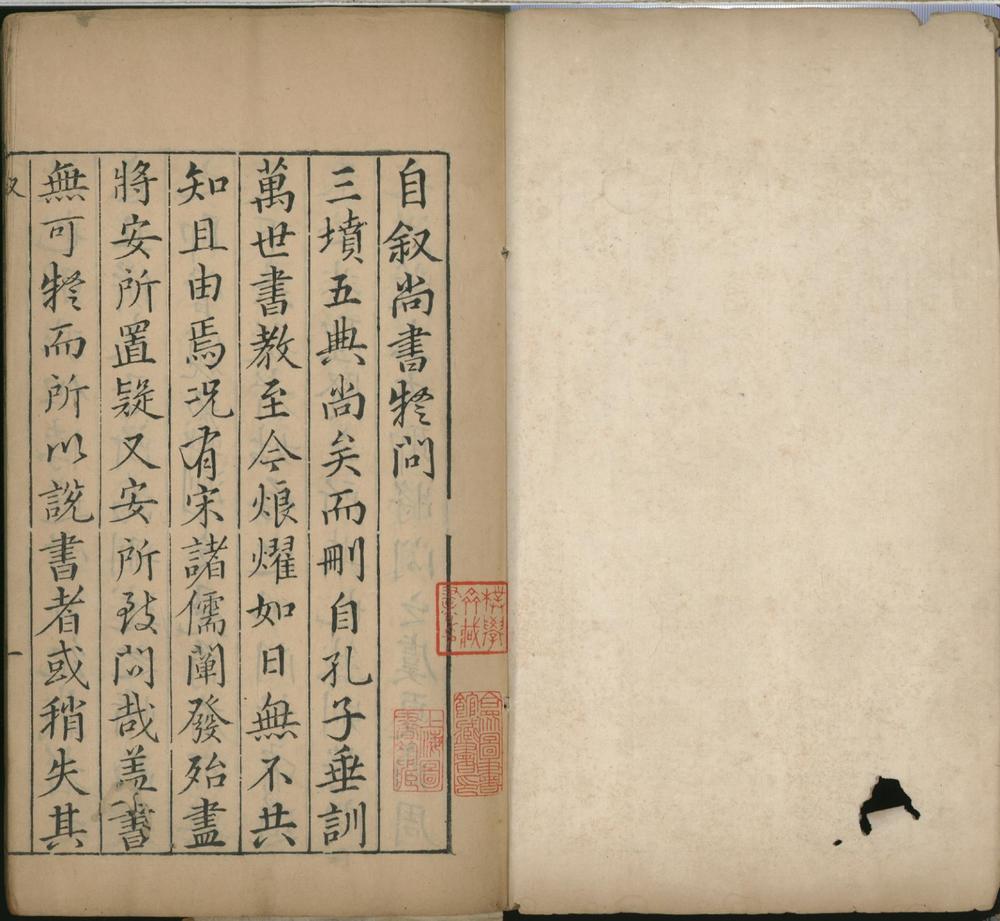 自叙尚書疑問
三墳五典尚矣而刪自孔子垂訓
萬世書教至今烺燿如日無不共
知且由焉况有宋諸儒闡發殆盡
將安所置疑又安所致問哉盖書
無可疑而所以説書者或稍失其
上海圖書館藏